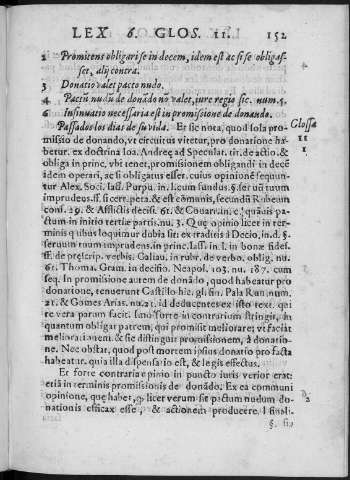 LEX 6. GLOS. 11. 152
2 Promitens obligari se in decem, idem est ac si se obligas-
set, alij contra.
3 Donatio valet pacto nudo.
4 Pactũ nudũ de donãdo nõ valet, iure regio sic. num. 5.
6 Insinuatio necessaria est in promissione de donando.
Passados los dias de su vida. Et sic nota, quod sola pro-
Glossa
11
1
missio de donando, vt circuitus vitetur, pro donatione ha-
betur. ex doctrina Ioa. Andreę ad Speculat. tit. de actio. &
obliga in princ. vbi tenet, promissionem obligandi in decẽ
idem operari, ac si obligatus esset. cuius opinionẽ sequun-
tur Alex. Soci. Iass. Purpu. in l. cum fundus. §. seruũ tuum
imprudens. ff. si cert. peta. & est cõmunis, secundũ Rubeum
cons. 29. & Afflictis decisi. 61. & Couarr. in c. quãuis pa-
ctum in initio tertiæ partis. nu. 3. Quę opinio licet in ter-
minis quibus loquitur dubia sit: ex traditis à Decio, in d. §.
seruum tuum imprudens. in princ. Iass. in l. in bonæ fidei.
ff. de præscrip. verbis. Galiau. in rubr. de verbo. oblig. nu.
61. Thoma. Gram. in decisio. Neapol. 103. nu. 187. cum
seq. In promissione autem de donãdo, quod habeatur pro
donatione, tenuerunt Castillo hic. gl. fin. Pala Ruu. num.
21. & Gomez Arias. nu. 21. id deducentes ex isto text. qui
re vera parum facit. Imo forte in contrarium stringit, in
quantum obligat patrem, qui promisit meliorare; vt faciat
meliorationem. & sic distinguit promissionem, à donatio-
ne. Nec obstat, quod post mortem ipsius donatio pro facta
habeatur. quia illa dispensatio est, & legis effectus.
Et forte contraria opinio in puncto iuris verior erat:
etiã in terminis promissionis de donãdo. Ex ea communi
2
opinione, quę habet, q licet verum sit pactum nudum do-
nationis efficax esse, & actionem producere. l si
§. si